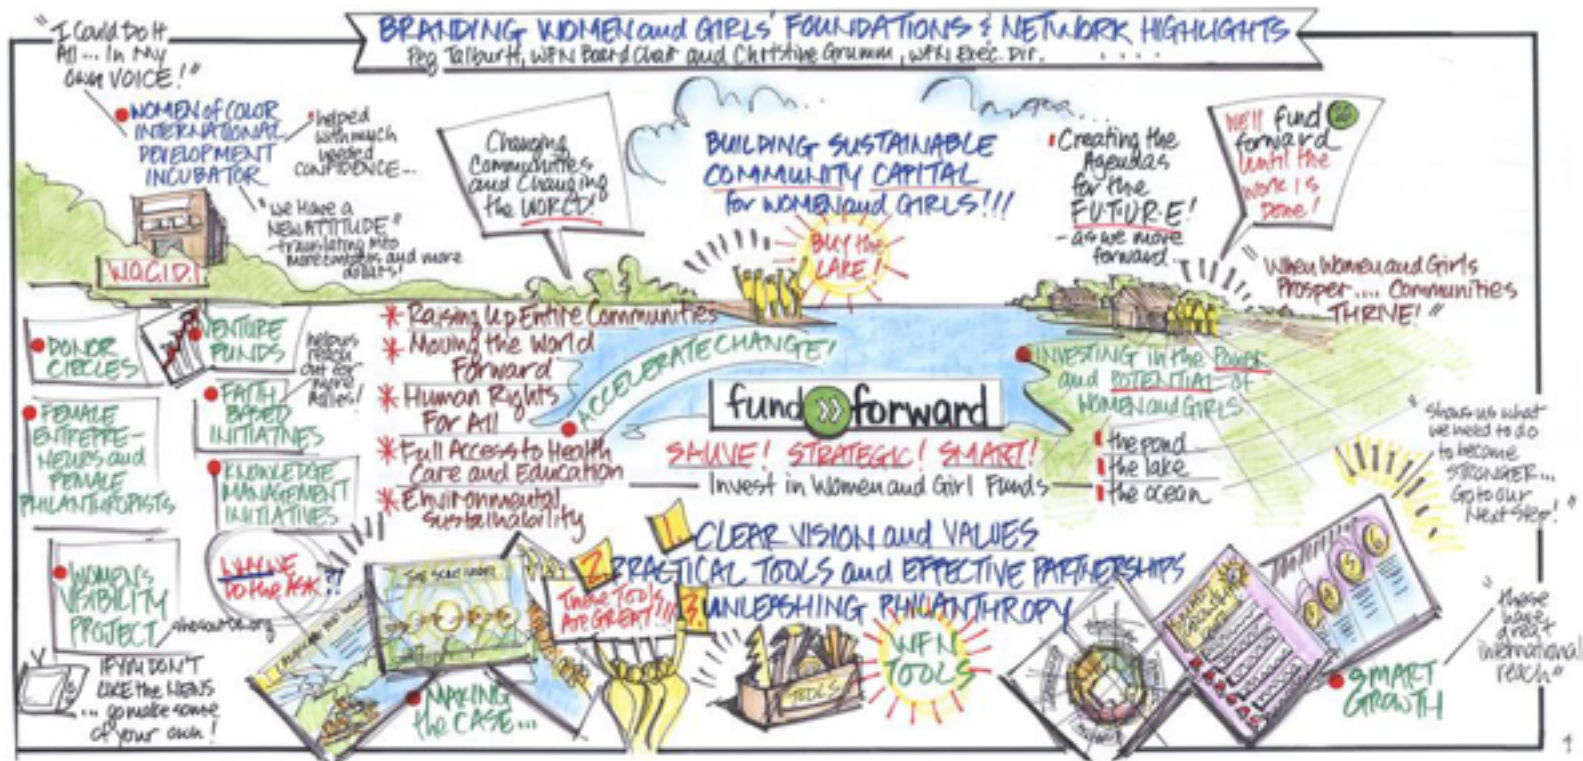 BRANDING WOMEN and GIRLS' FOUNDATIONS & NETWORK HIGHLIGHTS
Peg Talburtt, WFN Board Chair and Christine Grumm, WFN Exec. Dir. . . . .
"I Could Do It
All... In My
Own VOICE!"
WOMEN of COLOR
INTERNATIONAL
DEVELOPMENT
INCUBATOR
helped
with much
needed
CONFIDENCE...
"we Have a
NEW ATTITUDE"
-translating into
more contacts and more
dollars!
W.O.C.I.D.I
Changing
Communities
and Changing
the WORLD!
BUILDING SUSTAINABLE
COMMUNITY CAPITAL
for WOMEN and GIRLS!!!
BUY the
LAKE!
Creating the
Agendas
for the
F.U.T.U.R.E!
-as we move
forward
We'll fund
forward
until the
work is
Done!
"When Women and Girls
Prosper.... Communities
THRIVE!"
DONOR
CIRCLES
VENTURE
FUNDS
helps us
reach
out for
more
Allies!
FAITH
BASED
INITIATIVES
FEMALE
ENTREPRE-
NEURS and
FEMALE
PHILANTHROPISTS
KNOWLEDGE
MANAGEMENT
INITIATIVES
WOMEN'S
VISIBILITY
PROJECT
shesource.org
IF YOU DON'T
LIKE the NEWS
... go make some
of your own!
* Raising Up Entire Communities
* Moving the World
Forward
* Human Rights
For All
* Full Access to Health
Care and Education
* Environmental
Sustainability
ACCELERATE CHANGE!
fund >> forward
SAUVE! STRATEGIC! SMART!
Invest in Women and Girl Funds
INVESTING in the Power
and POTENTIAL of
WOMEN and GIRLS
the pond
the lake
the ocean
1. CLEAR VISION and VALUES
2. PRACTICAL TOOLS and EFFECTIVE PARTNERSHIPS
3. UNLEASHING PHILANTHROPY
DO the ASK?!
These TOOLS
Are GREAT!!!
MAKING
the CASE...
TOOLS
WFN
TOOLS
"Shows us what
we need to do
to become
STRONGER...
Go to our
Next Step!"
SMART
GROWTH
"these
have
great
international
reach"